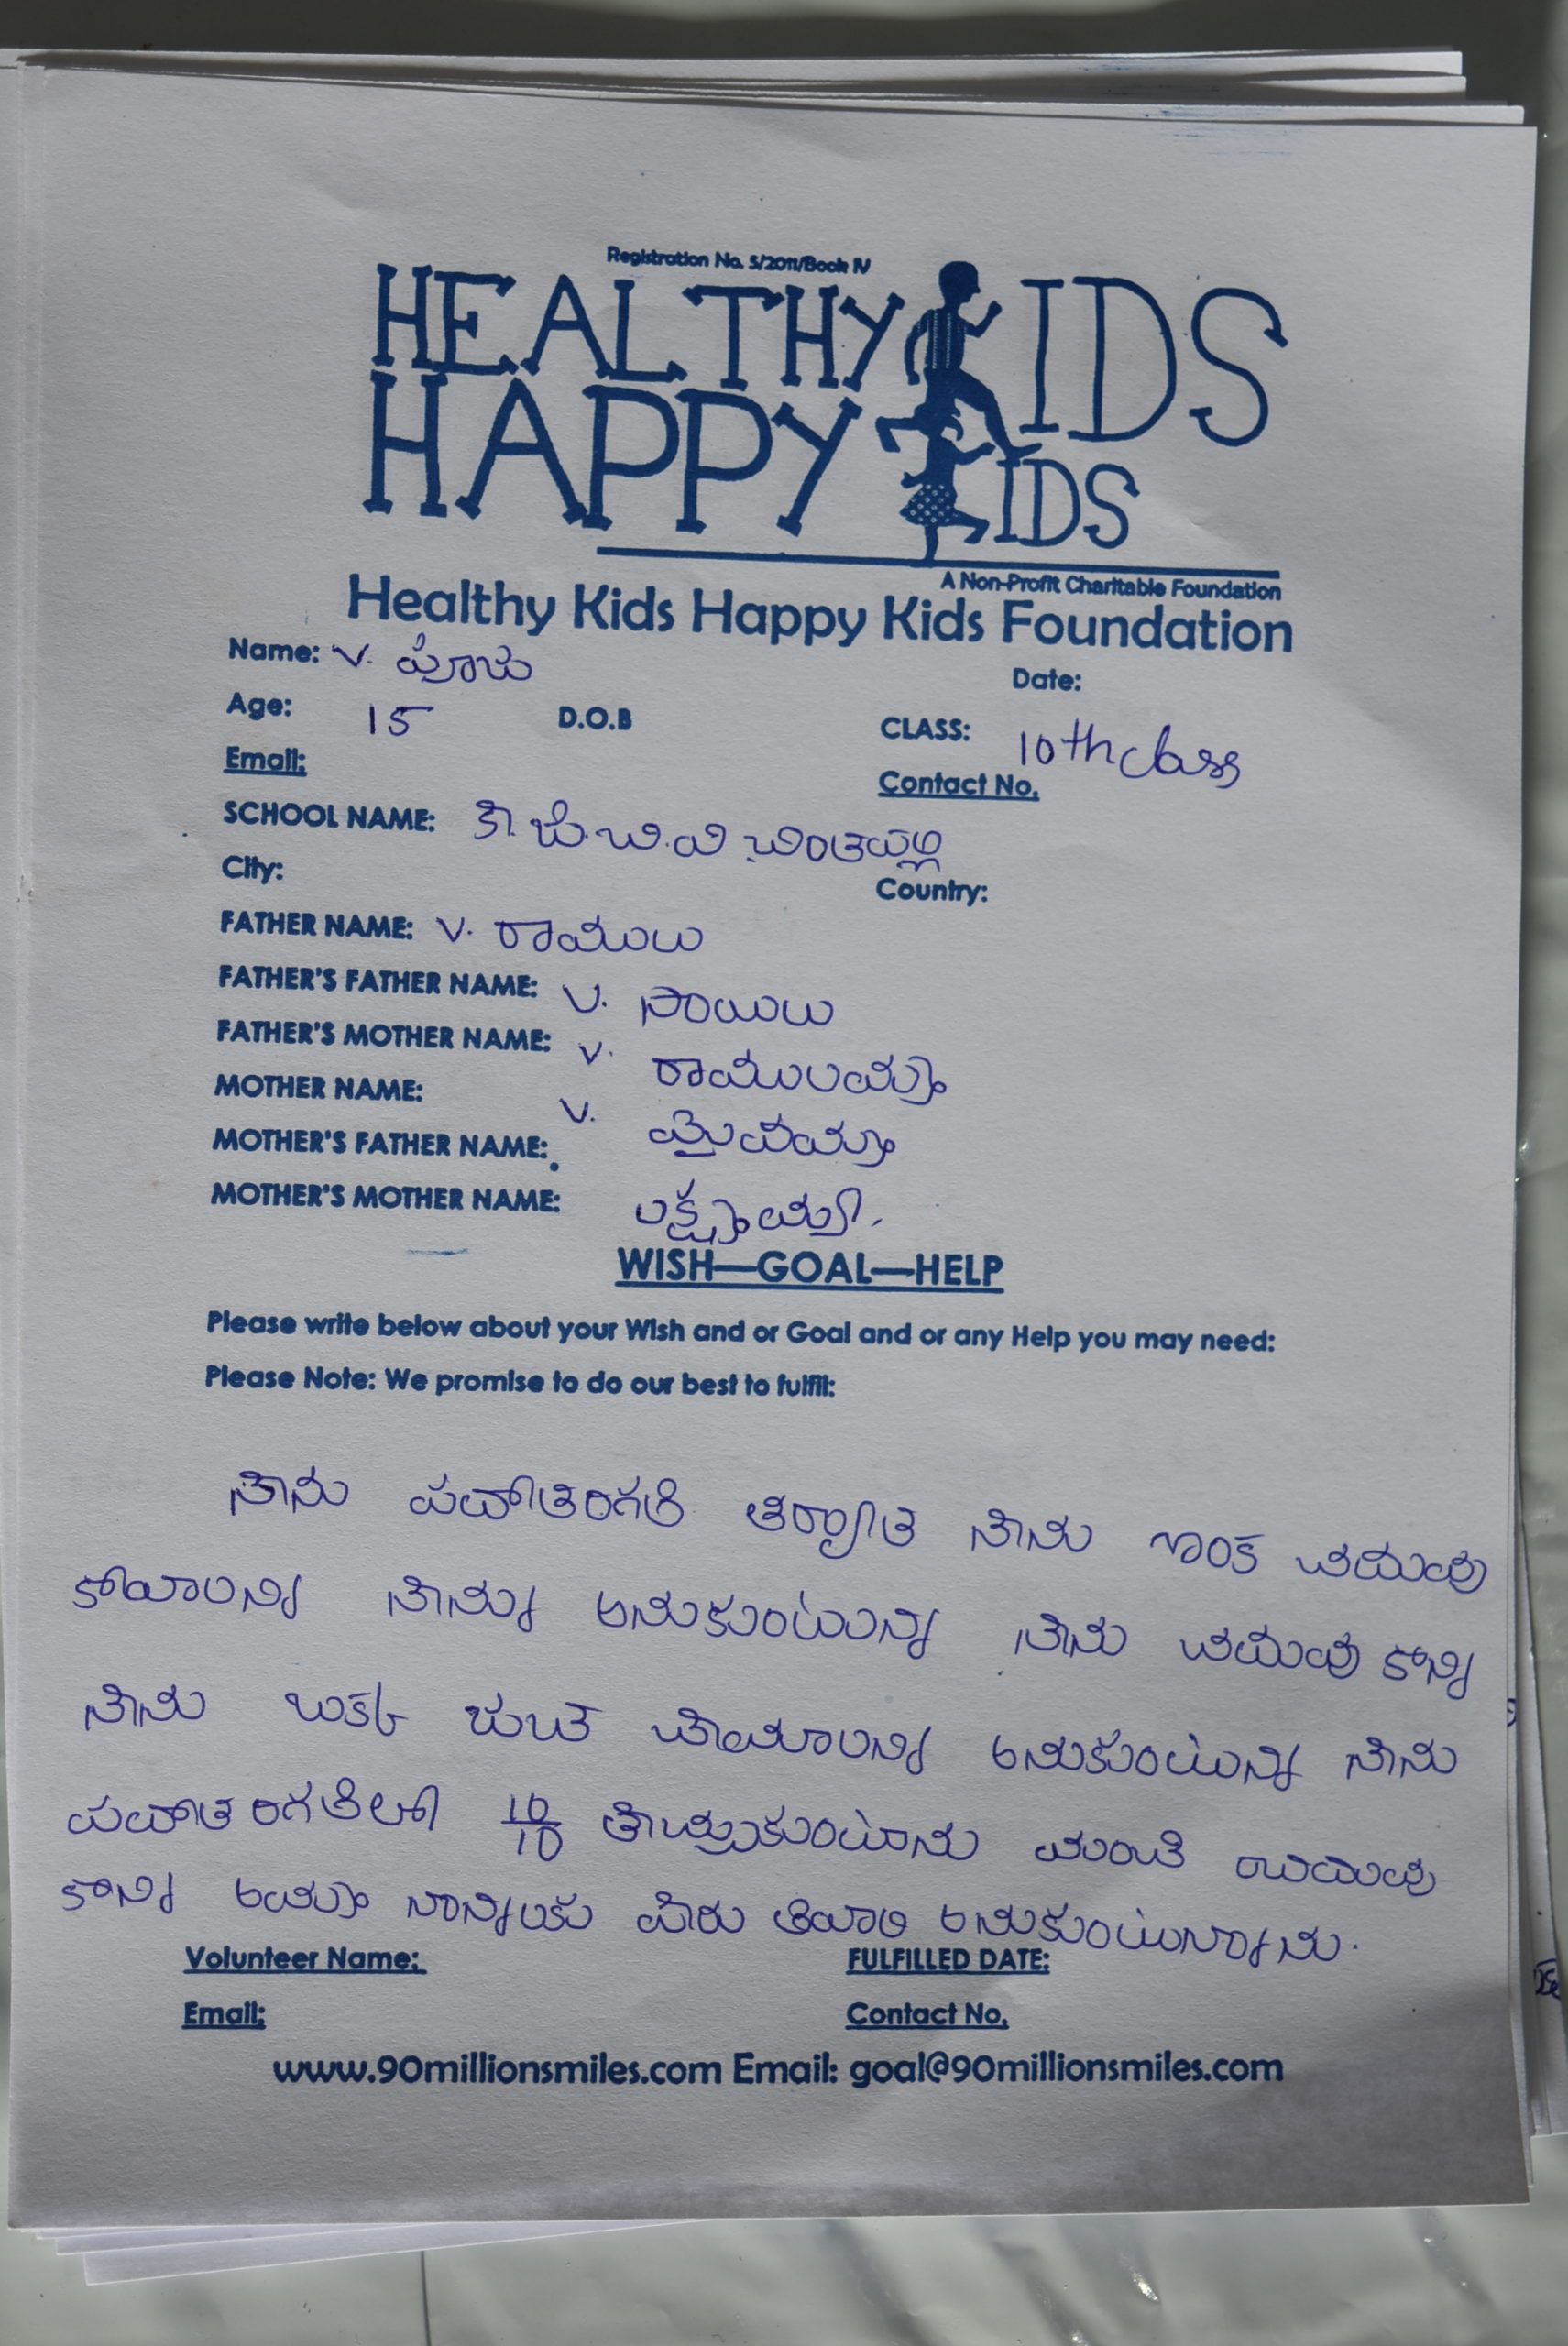 Registration No. 5/2011/Book IV
HEALTHY KIDS
HAPPY KIDS
A Non-Profit Charitable Foundation
Healthy Kids Happy Kids Foundation
Name: V. పూజ
Date:
Age: 15 D.O.B CLASS: 10th class
Email: Contact No.
SCHOOL NAME: కె.జి.బి.వి చింతపల్లి
City: Country:
FATHER NAME: V. రాములు
FATHER'S FATHER NAME: V. సాయిలు
FATHER'S MOTHER NAME: V. రాములమ్మ
MOTHER NAME: V.
MOTHER'S FATHER NAME:
MOTHER'S MOTHER NAME: లక్ష్మమ్మ.
WISH—GOAL—HELP
Please write below about your Wish and or Goal and or any Help you may need:
Please Note: We promise to do our best to fulfil:
నేను పదోతరగతి తర్వాత నేను ఇంక చదువు
కోవాలని నేను అనుకుంటున్న నేను చదువు కొని
నేను ఒక్క చేయాలని అనుకుంటున్న నేను
పదోతరగతిలో 10/10 తెచ్చుకుంటాను మంచి చదువు
కొని అమ్మ నాన్నలకు పేరు తేవాలి అనుకుంటున్నాను.
Volunteer Name: FULFILLED DATE:
Email: Contact No.
www.90millionsmiles.com Email: goal@90millionsmiles.com